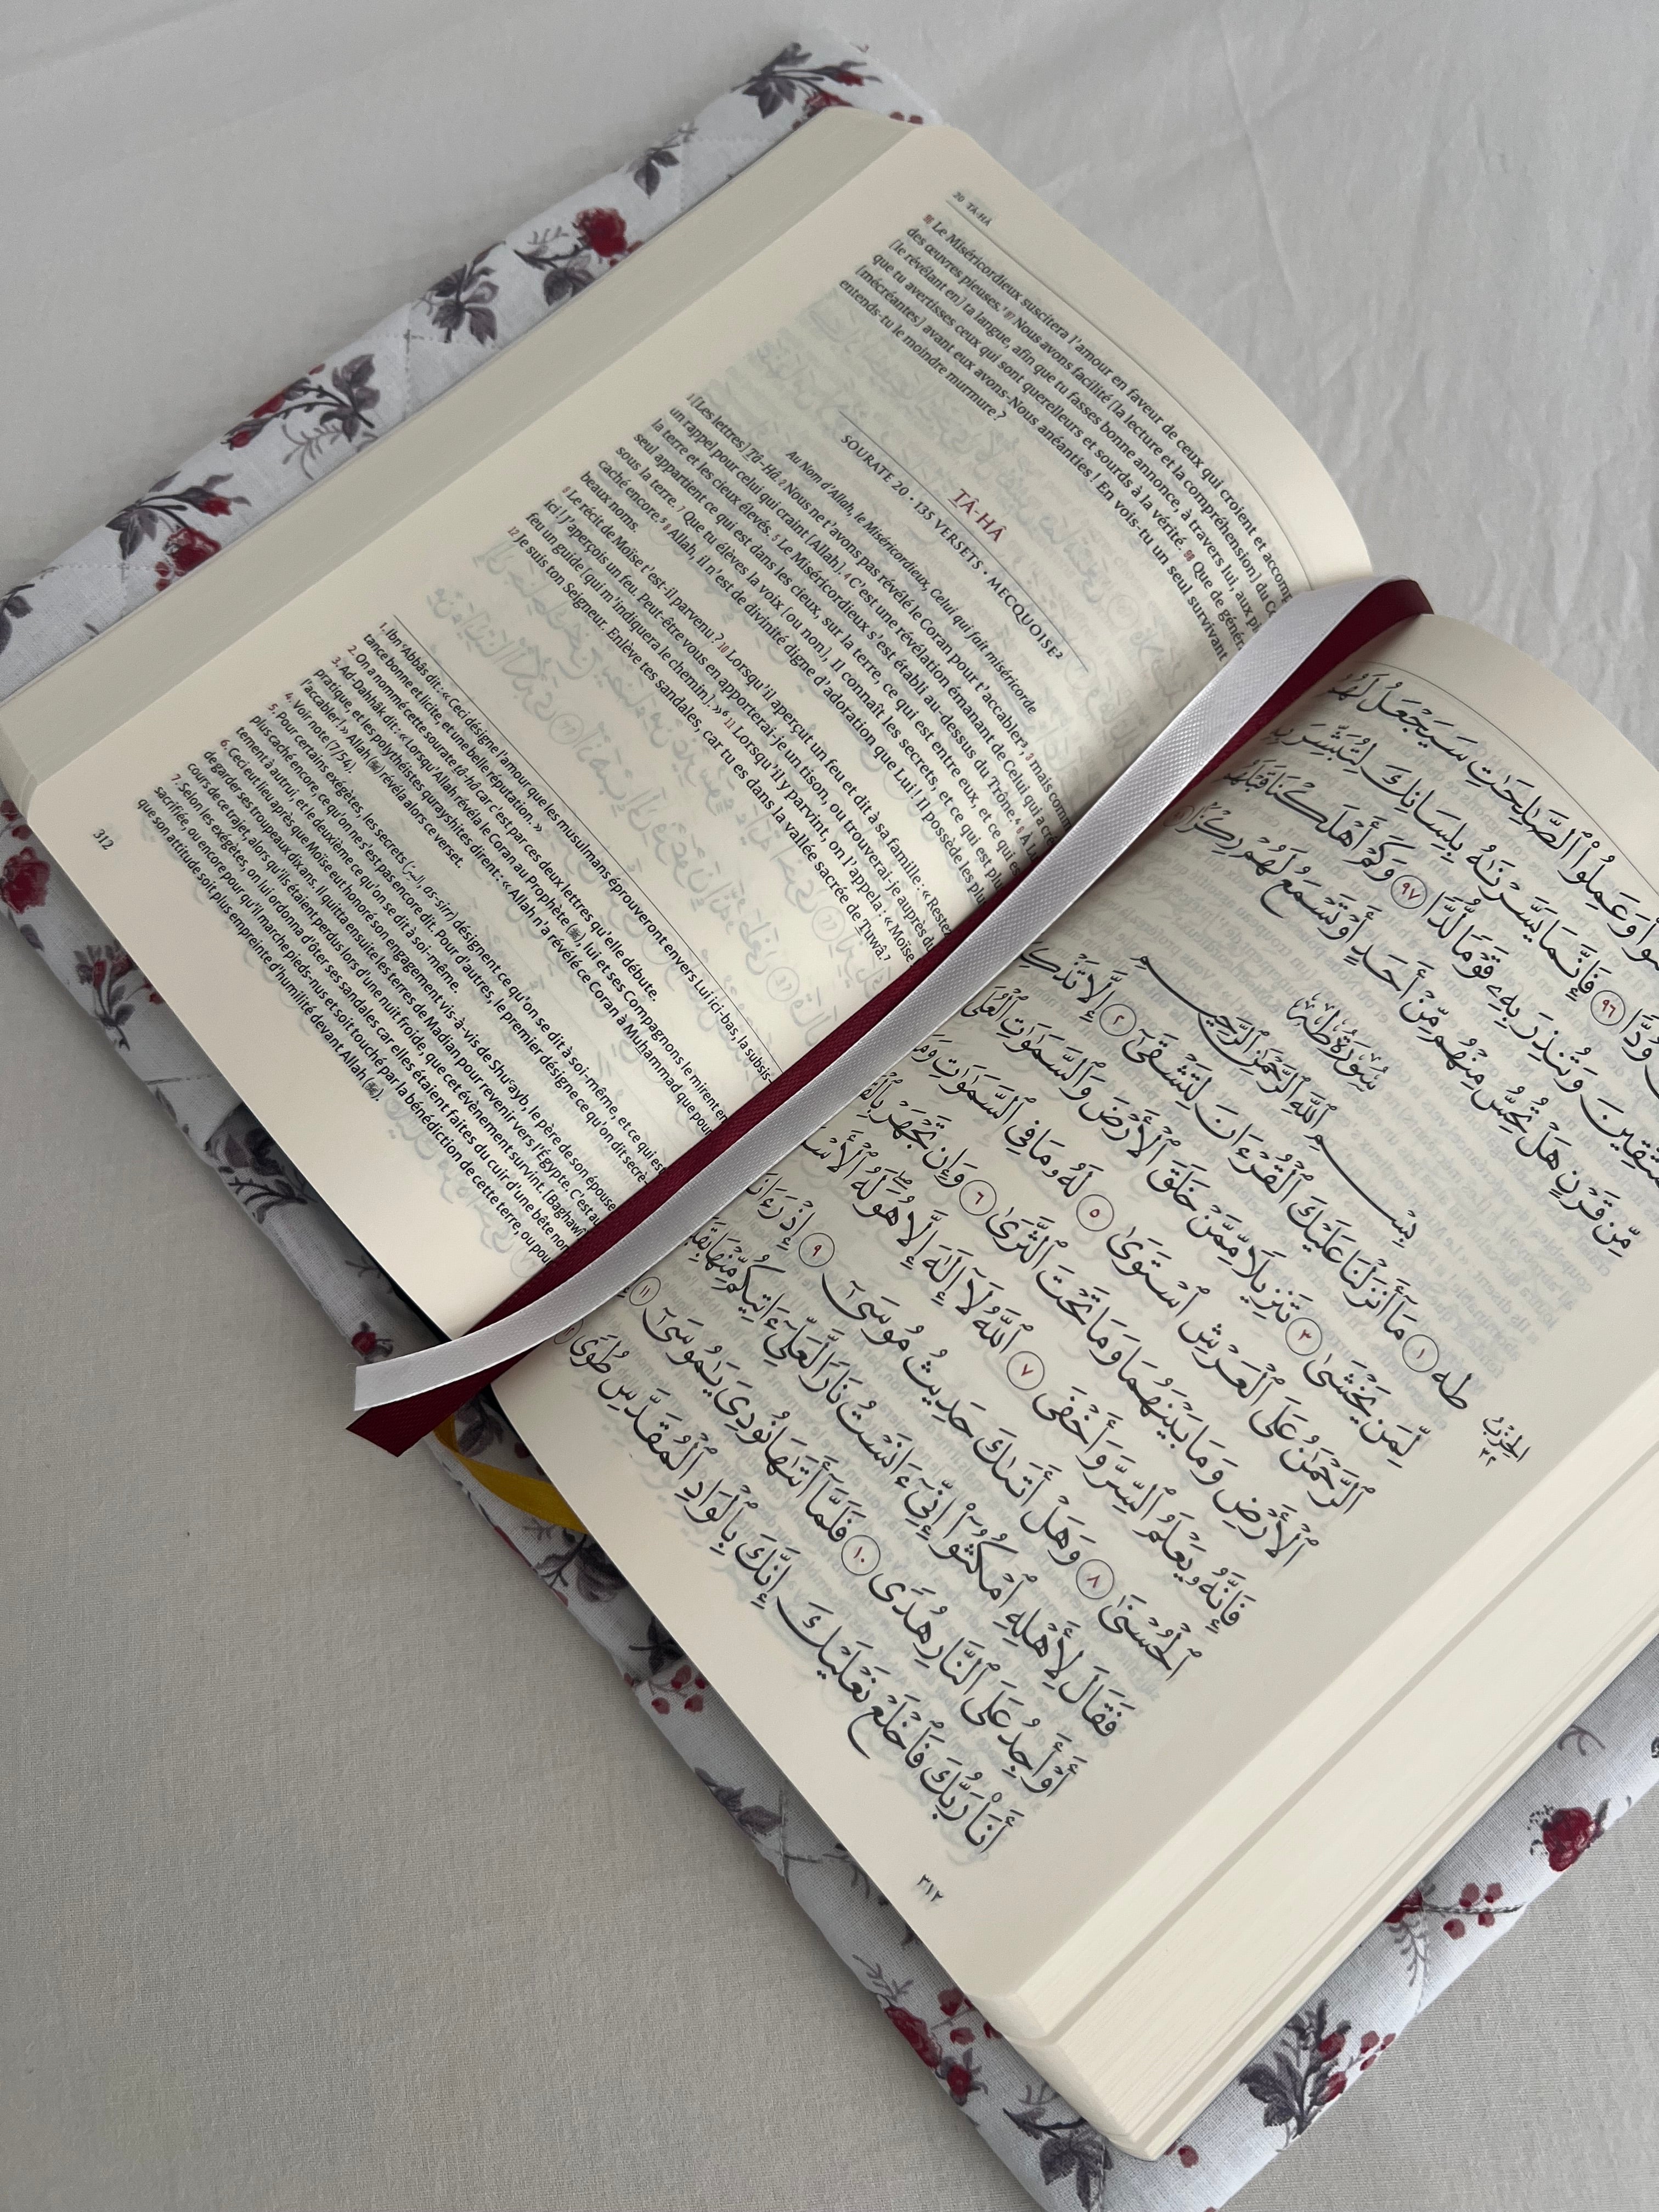 20 TÂ-HÂ
96 Le Miséricordieux suscitera l'amour en faveur de ceux qui croient et
des œuvres pieuses.¹ 97 Nous avons facilité (la lecture et la compréhension) du
[le révélant en] ta langue, afin que tu fasses bonne annonce, à travers lui, aux
que tu avertisses ceux qui sont querelleurs et sourds à la vérité. 98 Que de
[mécréantes] avant eux avons-Nous anéanties ! En vois-tu un seul survivant
entends-tu le moindre murmure ?
TÂ-HÂ
SOURATE 20 • 135 VERSETS • MECQUOISE²
Au Nom d'Allah, le Miséricordieux, Celui qui fait miséricorde
1 [Les lettres] Tâ-Hâ. 2 Nous ne t'avons pas révélé le Coran pour t'accabler³, 3 mais comme
un rappel pour celui qui craint [Allah]. 4 C'est une révélation émanant de Celui qui a créé
la terre et les cieux élevés. 5 Le Miséricordieux s'est établi au-dessus du Trône.⁴ 6 À Lui
seul appartient ce qui est dans les cieux, sur la terre, ce qui est entre eux, et ce qui est
sous la terre. 7 Que tu élèves la voix [ou non], Il connaît les secrets, et ce qui est plus
caché encore.⁵ 8 Allah, il n'est de divinité digne d'adoration que Lui ! Il possède les plus
beaux noms.
9 Le récit de Moïse t'est-il parvenu ? 10 Lorsqu'il aperçut un feu et dit à sa famille : « Restez
ici ! J'aperçois un feu. Peut-être vous en apporterai-je un tison, ou trouverai-je auprès du
feu un guide [qui m'indiquera le chemin]. »⁶ 11 Lorsqu'il y parvint, on l'appela : « Moïse
12 Je suis ton Seigneur. Enlève tes sandales, car tu es dans la vallée sacrée de Tuwâ.⁷
1. Ibn ʿAbbâs dit : « Ceci désigne l'amour que les musulmans éprouveront envers Lui ici-bas, la subsis-
tance bonne et licite, et une belle réputation. »
2. On a nommé cette sourate tâ-hâ car c'est par ces deux lettres qu'elle débute.
3. Ad-Dahhâk dit : « Lorsqu'Allah révéla le Coran au Prophète (ﷺ), lui et ses Compagnons le mirent en
pratique, et les polythéistes qurayshites dirent : « Allah n'a révélé ce Coran à Muhammad que pour
l'accabler ! » Allah (ﷻ) révéla alors ce verset.
4. Voir note (7/54).
5. Pour certains exégètes, les secrets (السر, as-sirr) désignent ce qu'on se dit à soi-même, et ce qui est
plus caché encore, ce qu'on ne s'est pas encore dit. Pour d'autres, le premier désigne ce qu'on dit secrè-
tement à autrui, et le deuxième ce qu'on se dit à soi-même.
6. Ceci eut lieu après que Moïse eut honoré son engagement vis-à-vis de Shuʿayb, le père de son épouse
de garder ses troupeaux dix ans. Il quitta ensuite les terres de Madian pour revenir vers l'Égypte, c'est au
cours de ce trajet, alors qu'ils étaient perdus lors d'une nuit froide, que cet évènement survint. [Baghawî
7. Selon les exégètes, on lui ordonna d'ôter ses sandales car elles étaient faites du cuir d'une bête non
sacrifiée, ou encore pour qu'il marche pieds-nus et soit touché par la bénédiction de cette terre, ou pour
que son attitude soit plus empreinte d'humilité devant Allah (ﷻ).
312
وَعَمِلُوا۟ ٱلصَّـٰلِحَـٰتِ سَيَجْعَلُ لَهُمُ
وُدًّا ٩٦ فَإِنَّمَا يَسَّرْنَـٰهُ بِلِسَانِكَ لِتُبَشِّرَ بِهِ
وَتُنذِرَ بِهِۦ قَوْمًا لُّدًّا ٩٧ وَكَمْ أَهْلَكْنَا قَبْلَهُم
مِّن قَرْنٍ هَلْ تُحِسُّ مِنْهُم مِّنْ أَحَدٍ أَوْ تَسْمَعُ لَهُمْ رِكْزًۢا
سُورَةُ طه
بِسْمِ ٱللَّهِ ٱلرَّحْمَـٰنِ ٱلرَّحِيمِ
طه ١ مَآ أَنزَلْنَا عَلَيْكَ ٱلْقُرْءَانَ لِتَشْقَىٰٓ ٢ إِلَّا تَذْكِرَةً
لِّمَن يَخْشَىٰ ٣ تَنزِيلًا مِّمَّنْ خَلَقَ ٱلْأَرْضَ وَٱلسَّمَـٰوَٰتِ ٱلْعُلَى
ٱلرَّحْمَـٰنُ عَلَى ٱلْعَرْشِ ٱسْتَوَىٰ ٥ لَهُۥ مَا فِى ٱلسَّمَـٰوَٰتِ وَمَا فِى
ٱلْأَرْضِ وَمَا بَيْنَهُمَا وَمَا تَحْتَ ٱلثَّرَىٰ ٦ وَإِن تَجْهَرْ بِٱلْقَوْلِ
فَإِنَّهُۥ يَعْلَمُ ٱلسِّرَّ وَأَخْفَى ٧ ٱللَّهُ لَآ إِلَـٰهَ إِلَّا هُوَ لَهُ ٱلْأَسْمَآءُ
ٱلْحُسْنَىٰ ٨ وَهَلْ أَتَىٰكَ حَدِيثُ مُوسَىٰٓ ٩ إِذْ رَءَا نَارًا
فَقَالَ لِأَهْلِهِ ٱمْكُثُوٓا۟ إِنِّىٓ ءَانَسْتُ نَارًا لَّعَلِّىٓ ءَاتِيكُم مِّنْهَا بِقَبَسٍ
أَوْ أَجِدُ عَلَى ٱلنَّارِ هُدًى ١٠ فَلَمَّآ أَتَىٰهَا نُودِىَ يَـٰمُوسَىٰٓ ١١ إِنِّىٓ
أَنَا۠ رَبُّكَ فَٱخْلَعْ نَعْلَيْكَ إِنَّكَ بِٱلْوَادِ ٱلْمُقَدَّسِ طُوًى
الحزب
٣٢
٣١٢